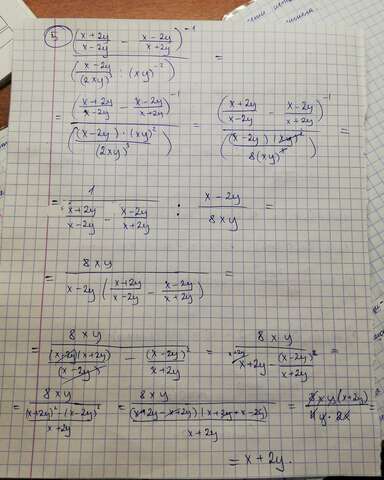 5) ((x+2y)/(x-2y) - (x-2y)/(x+2y))^-1 / ((x-2y)/(2xy)^3 : (xy)^-2) =
= ((x+2y)/(x-2y) - (x-2y)/(x+2y))^-1 / ((x-2y)·(xy)^2/(2xy)^3) = ((x+2y)/(x-2y) - (x-2y)/(x+2y))^-1 / ((x-2y)(xy)^2/8(xy)^3) =
= 1/((x+2y)/(x-2y) - (x-2y)/(x+2y)) : (x-2y)/8xy =
= 8xy/(x-2y((x+2y)/(x-2y) - (x-2y)/(x+2y))) =
= 8xy/((x-2y)(x+2y)/(x-2y) - (x-2y)^2/(x+2y)) = 8xy/(x+2y - (x-2y)^2/(x+2y)) =
= 8xy/(((x+2y)^2-(x-2y)^2)/(x+2y)) = 8xy/((x+2y-x+2y)(x+2y+x-2y)/(x+2y)) = 8xy(x+2y)/(4y·2x)
= x+2y.